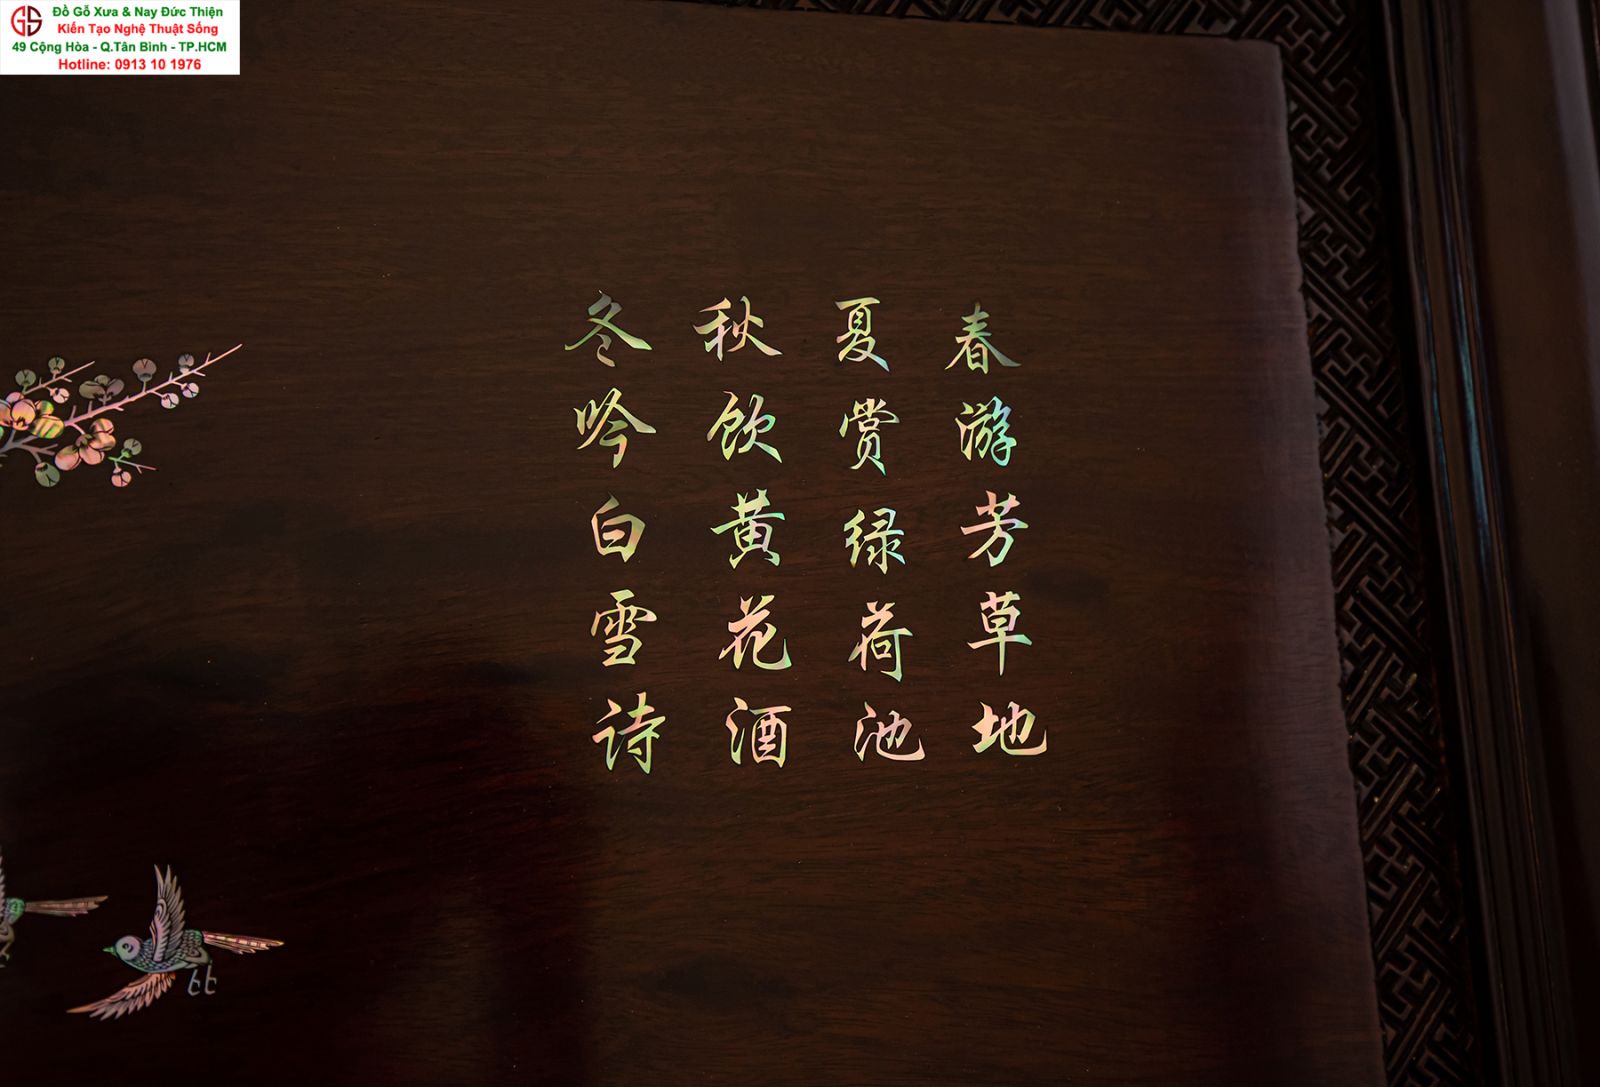 GS
Đồ Gỗ Xưa & Nay Đức Thiện
Kiến Tạo Nghệ Thuật Sống
49 Cộng Hòa - Q.Tân Bình - TP.HCM
Hotline: 0913 10 1976
春游芳草地
夏赏绿荷池
秋饮黄花酒
冬吟白雪诗